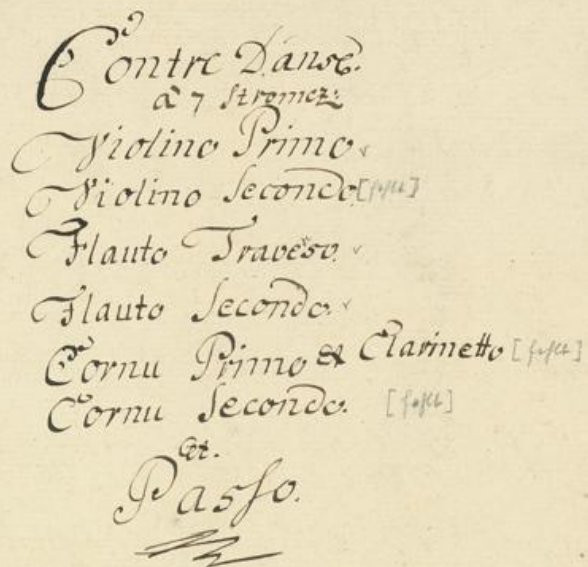 Contre Danse.
à 7 Stromez:
Violino Primo
Violino Secondo [fehlt]
Flauto Traveso.
Flauto Secondo.
Cornu Primo et Clarinetto [fehlt]
Cornu Secondo. [fehlt]
et.
Passo.